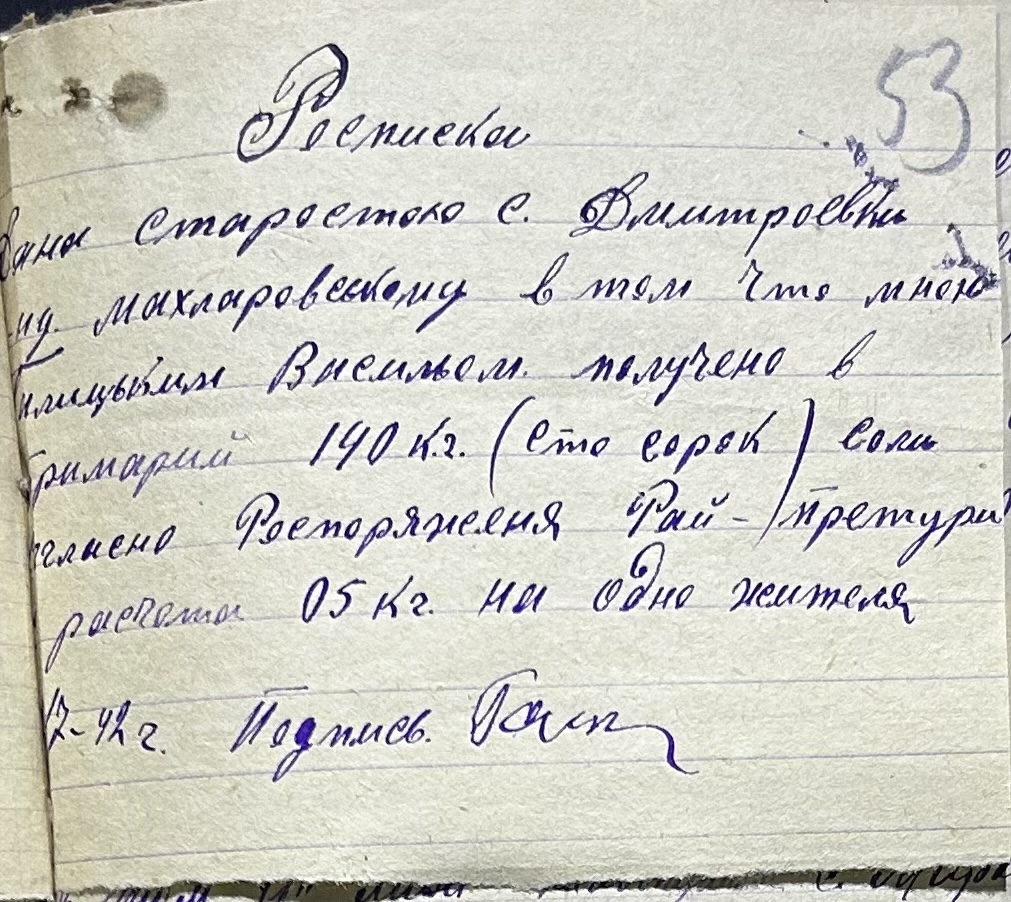 53
Росписка
Дана старостою с. Дмитроевки
му. Махларовському в том что мною
Василем получено в
Примарии 140 к.г. (сто сорок) соли
огласно Роспоряженя Рай-претури
расчета 05 кг. на одно жителя
7-42 г. Подпись.